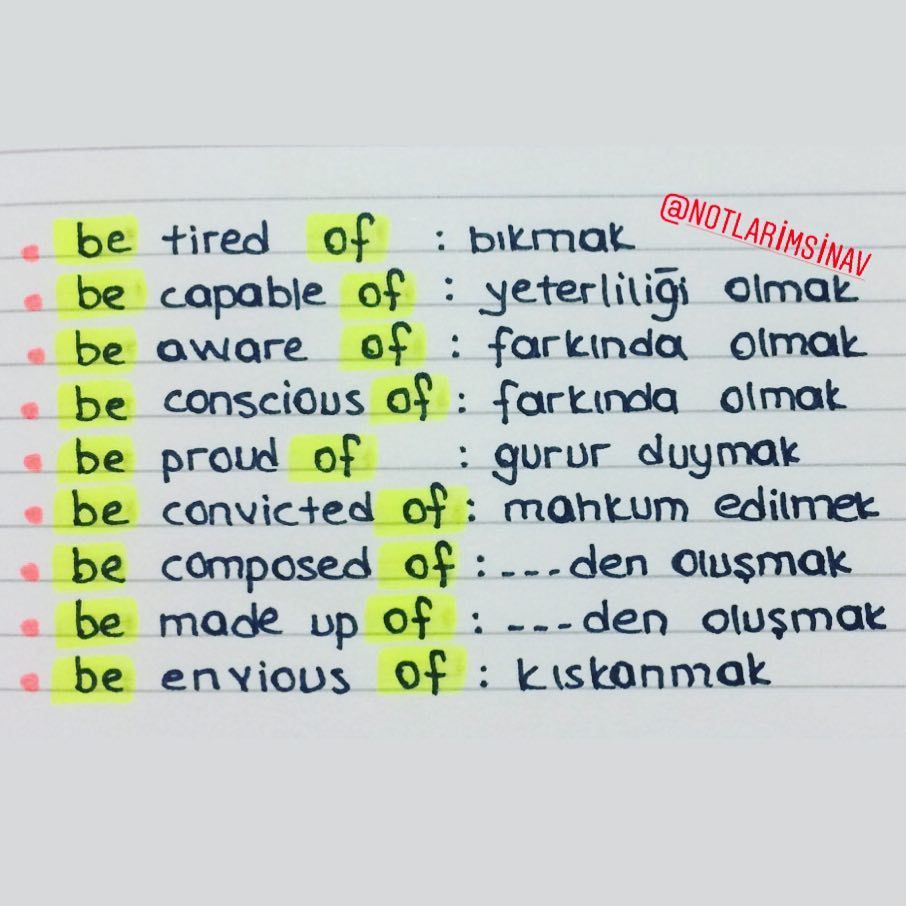 @NOTLARİMSİNAV
be tired of : bıkmak
be capable of : yeterliliği olmak
be aware of : farkında olmak
be conscious of : farkında olmak
be proud of : gurur duymak
be convicted of : mahkum edilmek
be composed of : ---den oluşmak
be made up of : ---den oluşmak
be envious of : kıskanmak